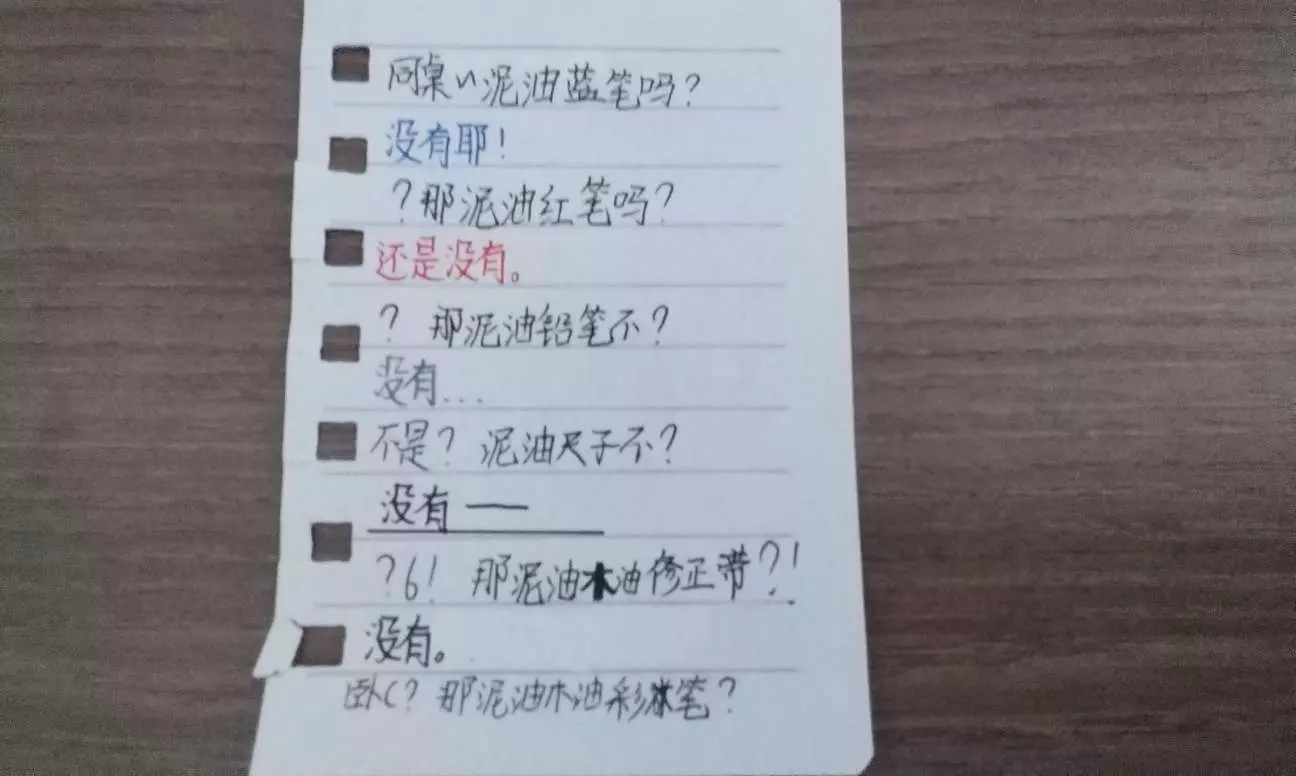 同桌～泥油蓝笔吗？
没有耶！
？那泥油红笔吗？
还是没有。
？ 那泥油铅笔不？
没有...
不是？ 泥油尺子不？
没有——
？6！ 那泥油木油修正带？！
没有。
卧C？ 那泥油木油彩笔？